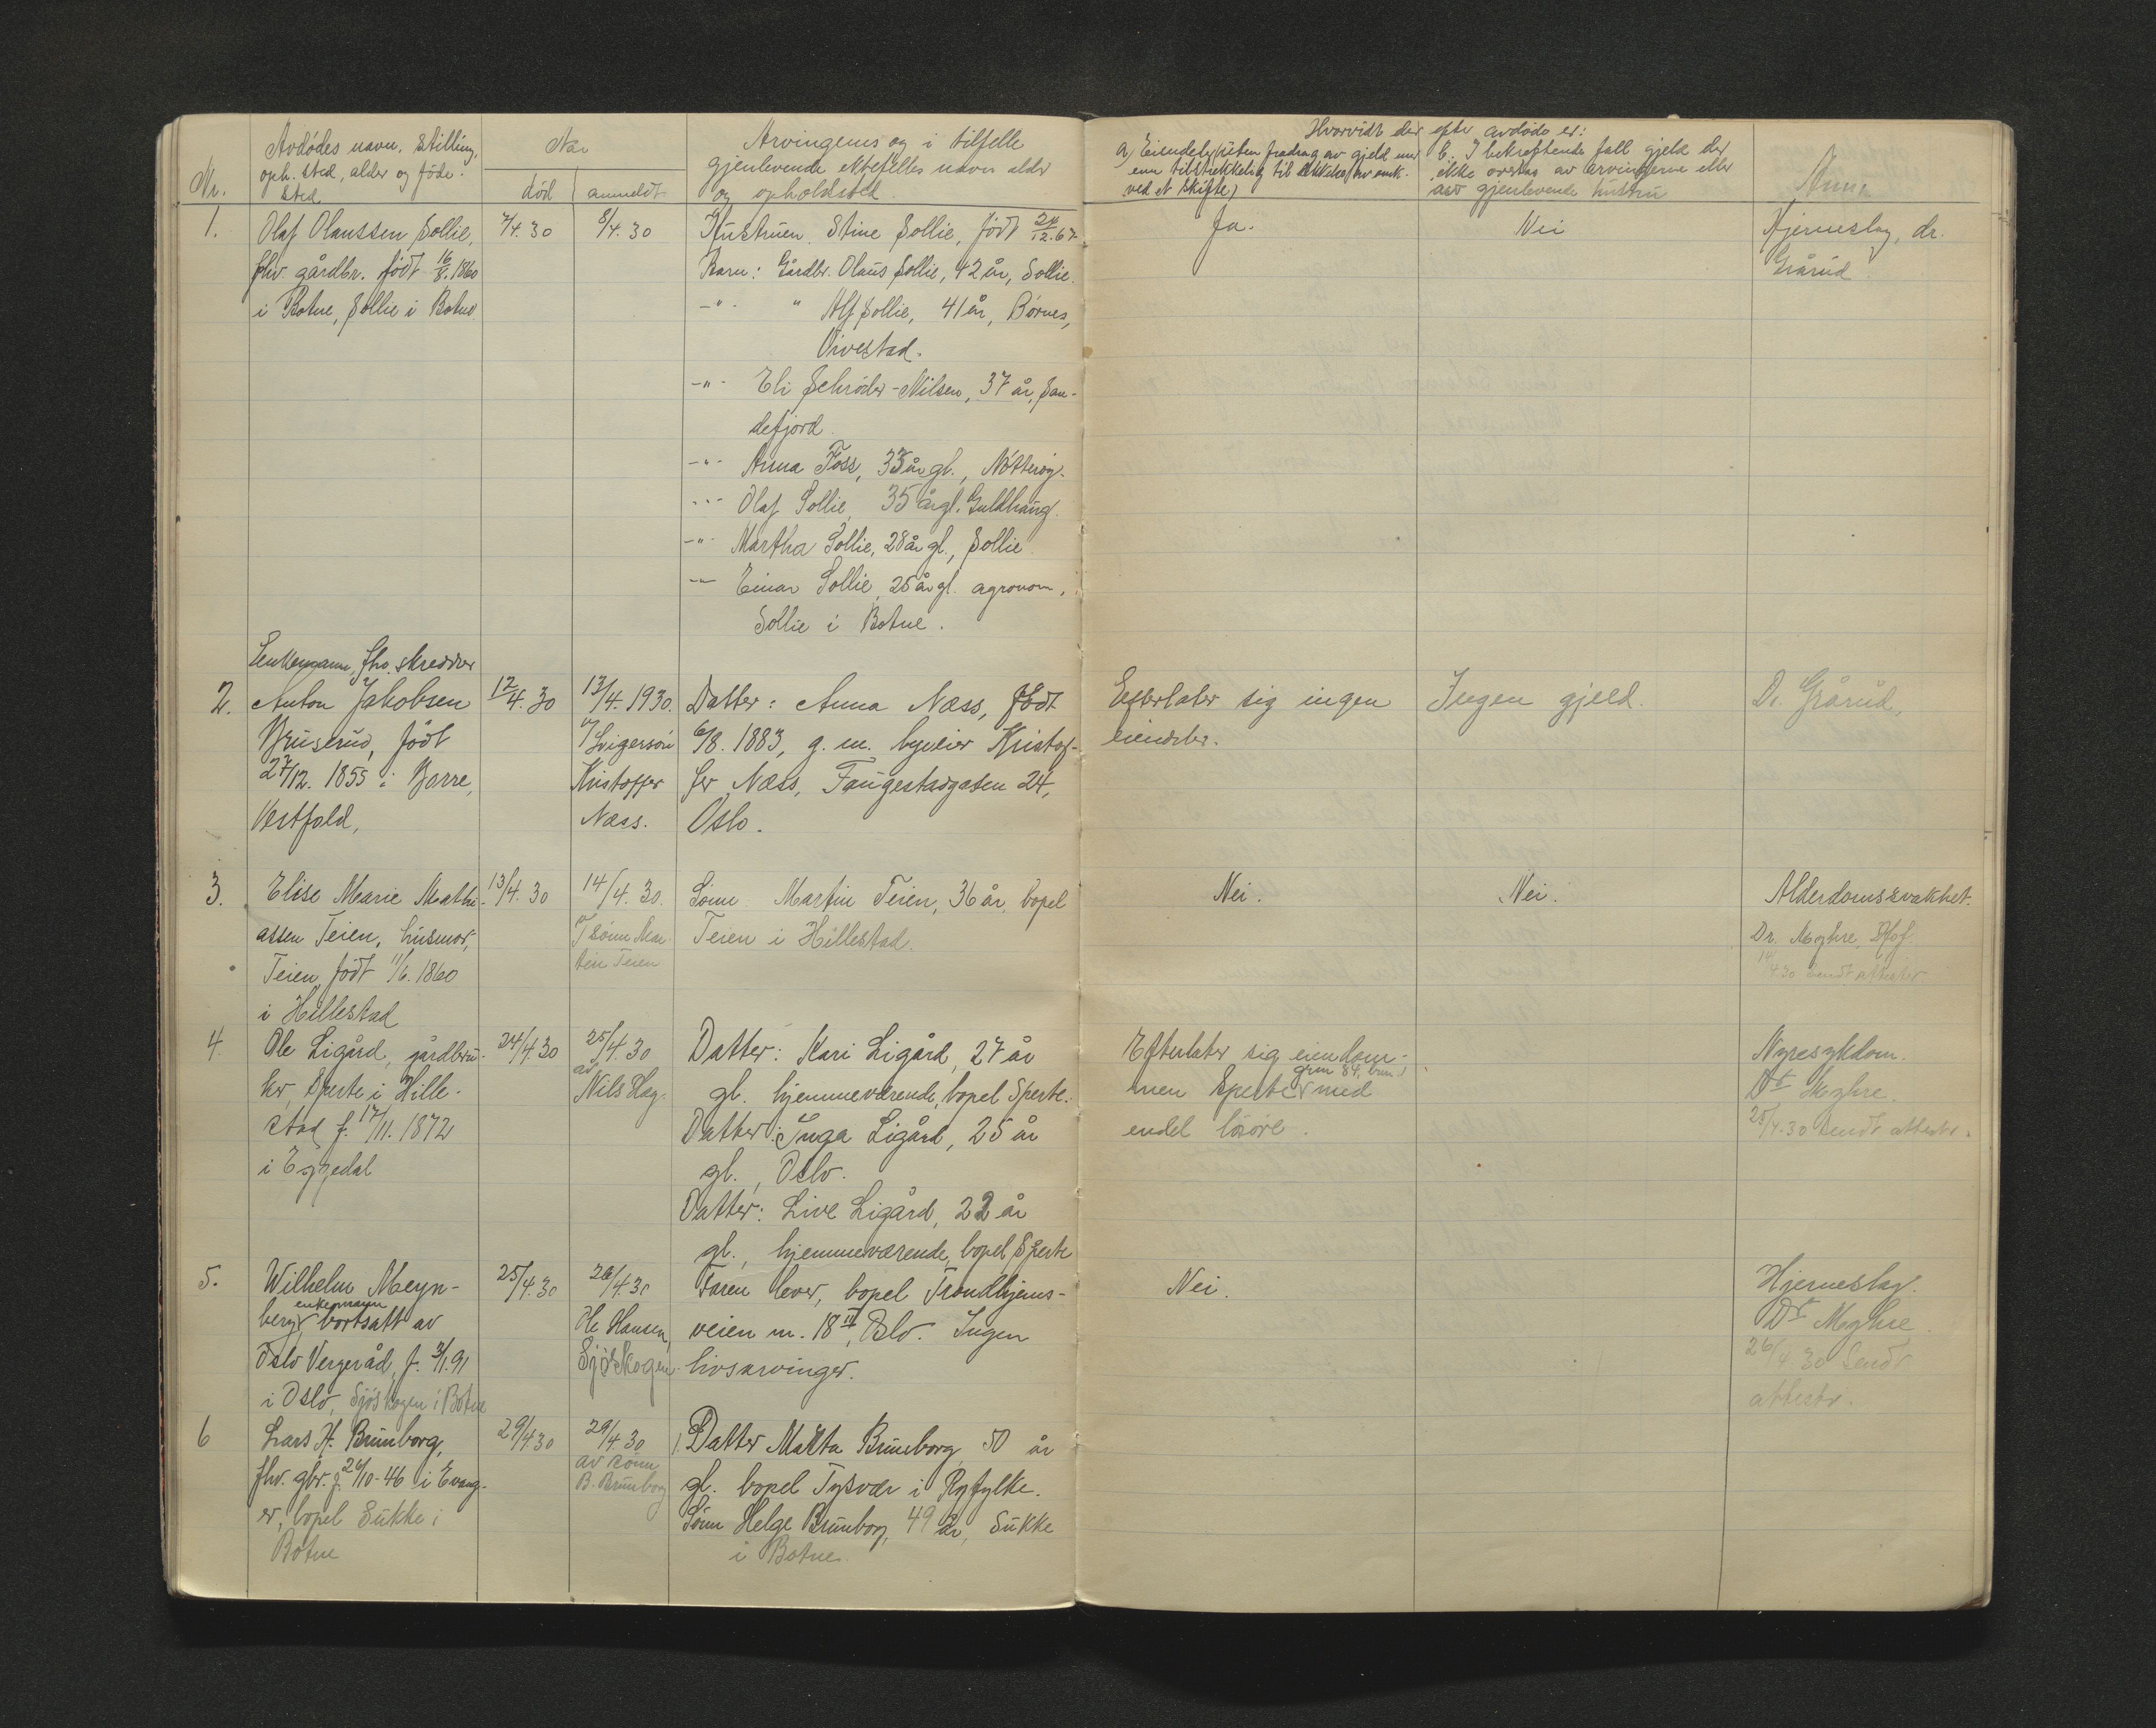 Avdödes navn, stilling,
oph. sted, alder og föde-
sted
Nr.
Når
död
anmeldt
Arvingenes og i tilfelle
gjenlevende ektefelles navn alder
og opholdsted
Hvorvidt der efter avdöde er:
a) Eiendeler (uten fradrag av gjeld mer
enn tilstrekkelig til dekkelse av omk.
ved et skifte)
b. I bekreftende fall gjeld der
ikke overtas av arvingerne eller
av gjenlevende hustru
Anm.
1.
Olaf Olaussen Sollie,
fhv. gårdbr. födt 16/8. 1860
i Botne, Sollie i Botne
7/4. 30
8/4. 30
Hustruen Stine Sollie, födt 24/12. 67
Barn: Gårdbr. Olaus Sollie, 42 år, Sollie.
-"- " Alf Sollie, 41 år, Börnes,
Vivestad.
-"- Eli Schröder-Nilsen, 37 år, San-
defjord.
-"- Anna Foss, 33 år gl., Nötteröy.
-"- Olaf Sollie, 35 år gl. Guldhaug.
-"- Martha Sollie, 28 år gl., Sollie.
-"- Einar Sollie, 25 år gl. agronom,
Sollie i Botne.
Ja.
Nei
Hjerneslag, dr.
Grårud.
Enkemann, fhv. skredder
2. Anton Jakobsen
Bruserud, födt
27/12. 1855 i Borre,
Vestfold,
12/4. 30
13/4. 1930.
Svigersön
Kristoffer
Næss.
Datter: Anna Næss, födt
6/8. 1883, g. m. byeier Kristof-
fer Næss, Faugestadgaten 24,
Oslo.
Efterlater sig ingen
eiendeler.
Ingen gjeld.
Dr. Grårud,
3.
Elise Marie Mathi-
assen Teien, husmor,
Teien, födt 11/6. 1860
i Hillestad
13/4. 30
14/4. 30.
sönn Mar-
tin Teien
Sönn Martin Teien, 36 år, bopel
Teien i Hillestad.
Nei.
Nei.
Alderdomssvakhet.
Dr. Myhre, Hof.
14/4 30 sendt attester
4.
Ole Ligård, gårdbru-
ker, Sperte i Hille-
stad f. 17/11. 1872
i Eggedal
24/4 30
25/4. 30
av
Nils Hag.
Datter: Kari Ligård, 27 år
gl. hjemmeværende, bopel Sperte.
Datter: Inga Ligård, 25 år
gl., Oslo.
Datter: Live Ligård, 22 år
gl., hjemmeværende, bopel Sperte
Efterlater sig eiendom-
gnr 84, bnr. 1
men Sperte med
endel lösöre.
Nyresykdom.
Dr Myhre.
25/4. 30 sendt attester.
5.
Wilhelm Meyn-
enkemann
berg, bortsatt av
Oslo Vergeråd, f. 3/1. 91
i Oslo, Sjöskogen i Botne
25/4. 30
26/4. 30
Ole Hansen,
Sjöskogen.
Faren lever, bopel Trondhjems-
veien nr. 18 IV, Oslo. Ingen
livsarvinger.
Nei.
Hjerneslag.
Dr Myhre.
26/4. 30 Sendt
attester.
6
Lars H. Brunborg,
fhv. gbr. f. 26/10-46 i Evang-
er, bopel Sukke i
Botne
29/4 30
29/4 30
av sönn
B. Brunborg
Datter Marta Brunborg 50 år
gl. bopel Tysvær i Ryfylke.
Sönn Helge Brunborg, 49 år, Sukke
i Botne.